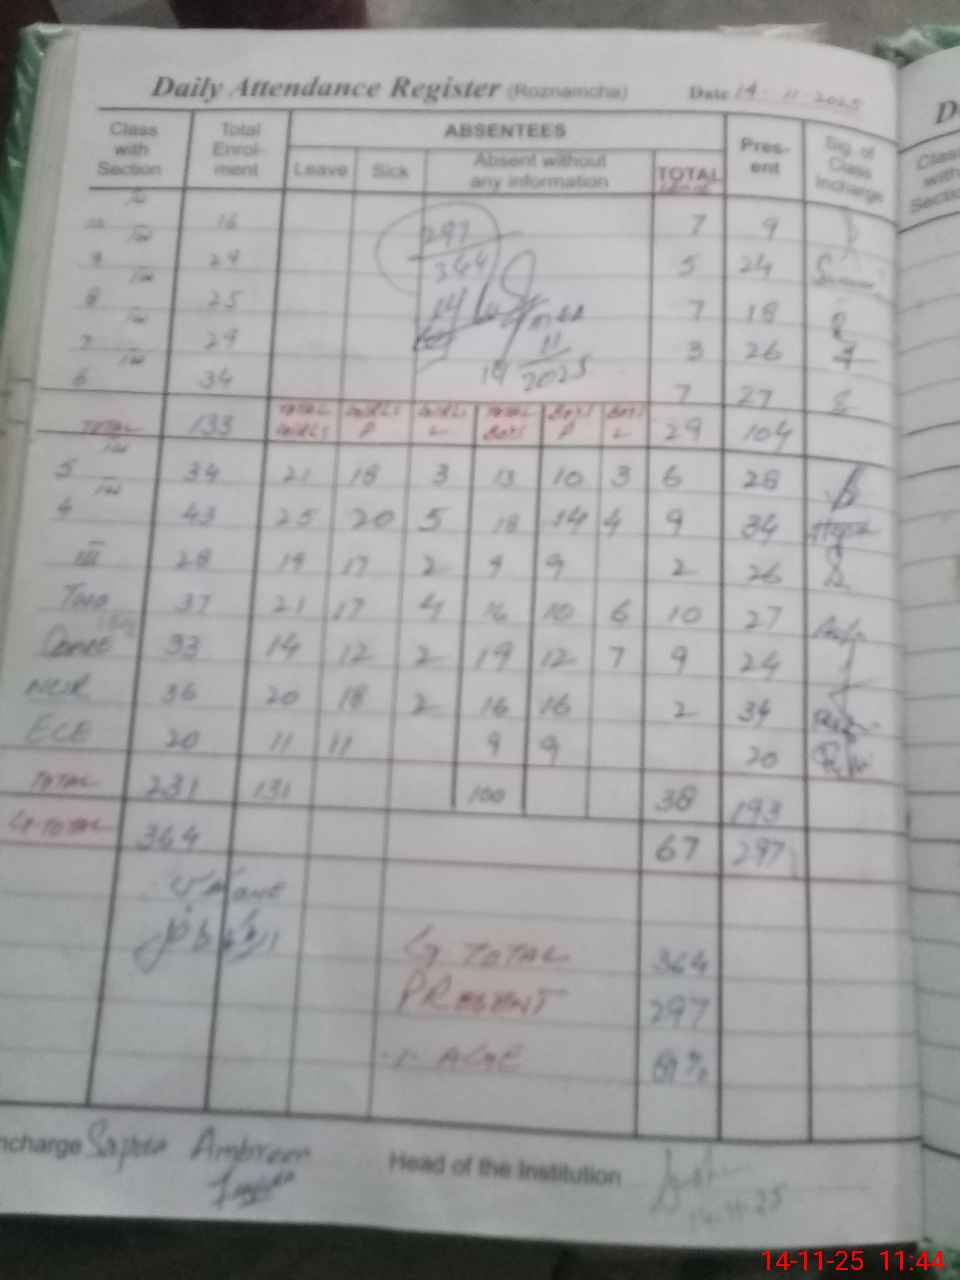 Daily Attendance Register (Roznamcha) Date 14-11-2025
Class with Section Total Enrol-ment ABSENTEES Pres-ent Sig. of Class Incharge
Leave Sick Absent without any information TOTAL
10 16 7 9
9 29 5 24
8 25 7 18
7 29 3 26
6 34 7 27
297
364
11
2025
TOTAL 133 TOTAL GIRLS GIRLS P GIRLS L TOTAL BOYS BOYS P BOYS L 29 104
5 34 21 18 3 13 10 3 6 28
4 43 25 20 5 18 14 4 9 34
III 28 19 17 2 9 9 2 26
Two 37 21 17 4 16 10 6 10 27
33 14 12 2 19 12 7 9 24
NUR 36 20 18 2 16 16 2 34
ECE 20 11 11 9 9 20
TOTAL 231 131 100 38 193
G.TOTAL 364 67 297
G TOTAL 364
PRESENT 297
% AGE
ncharge Ambreen
Head of the Institution
14-11-25
14-11-25 11:44